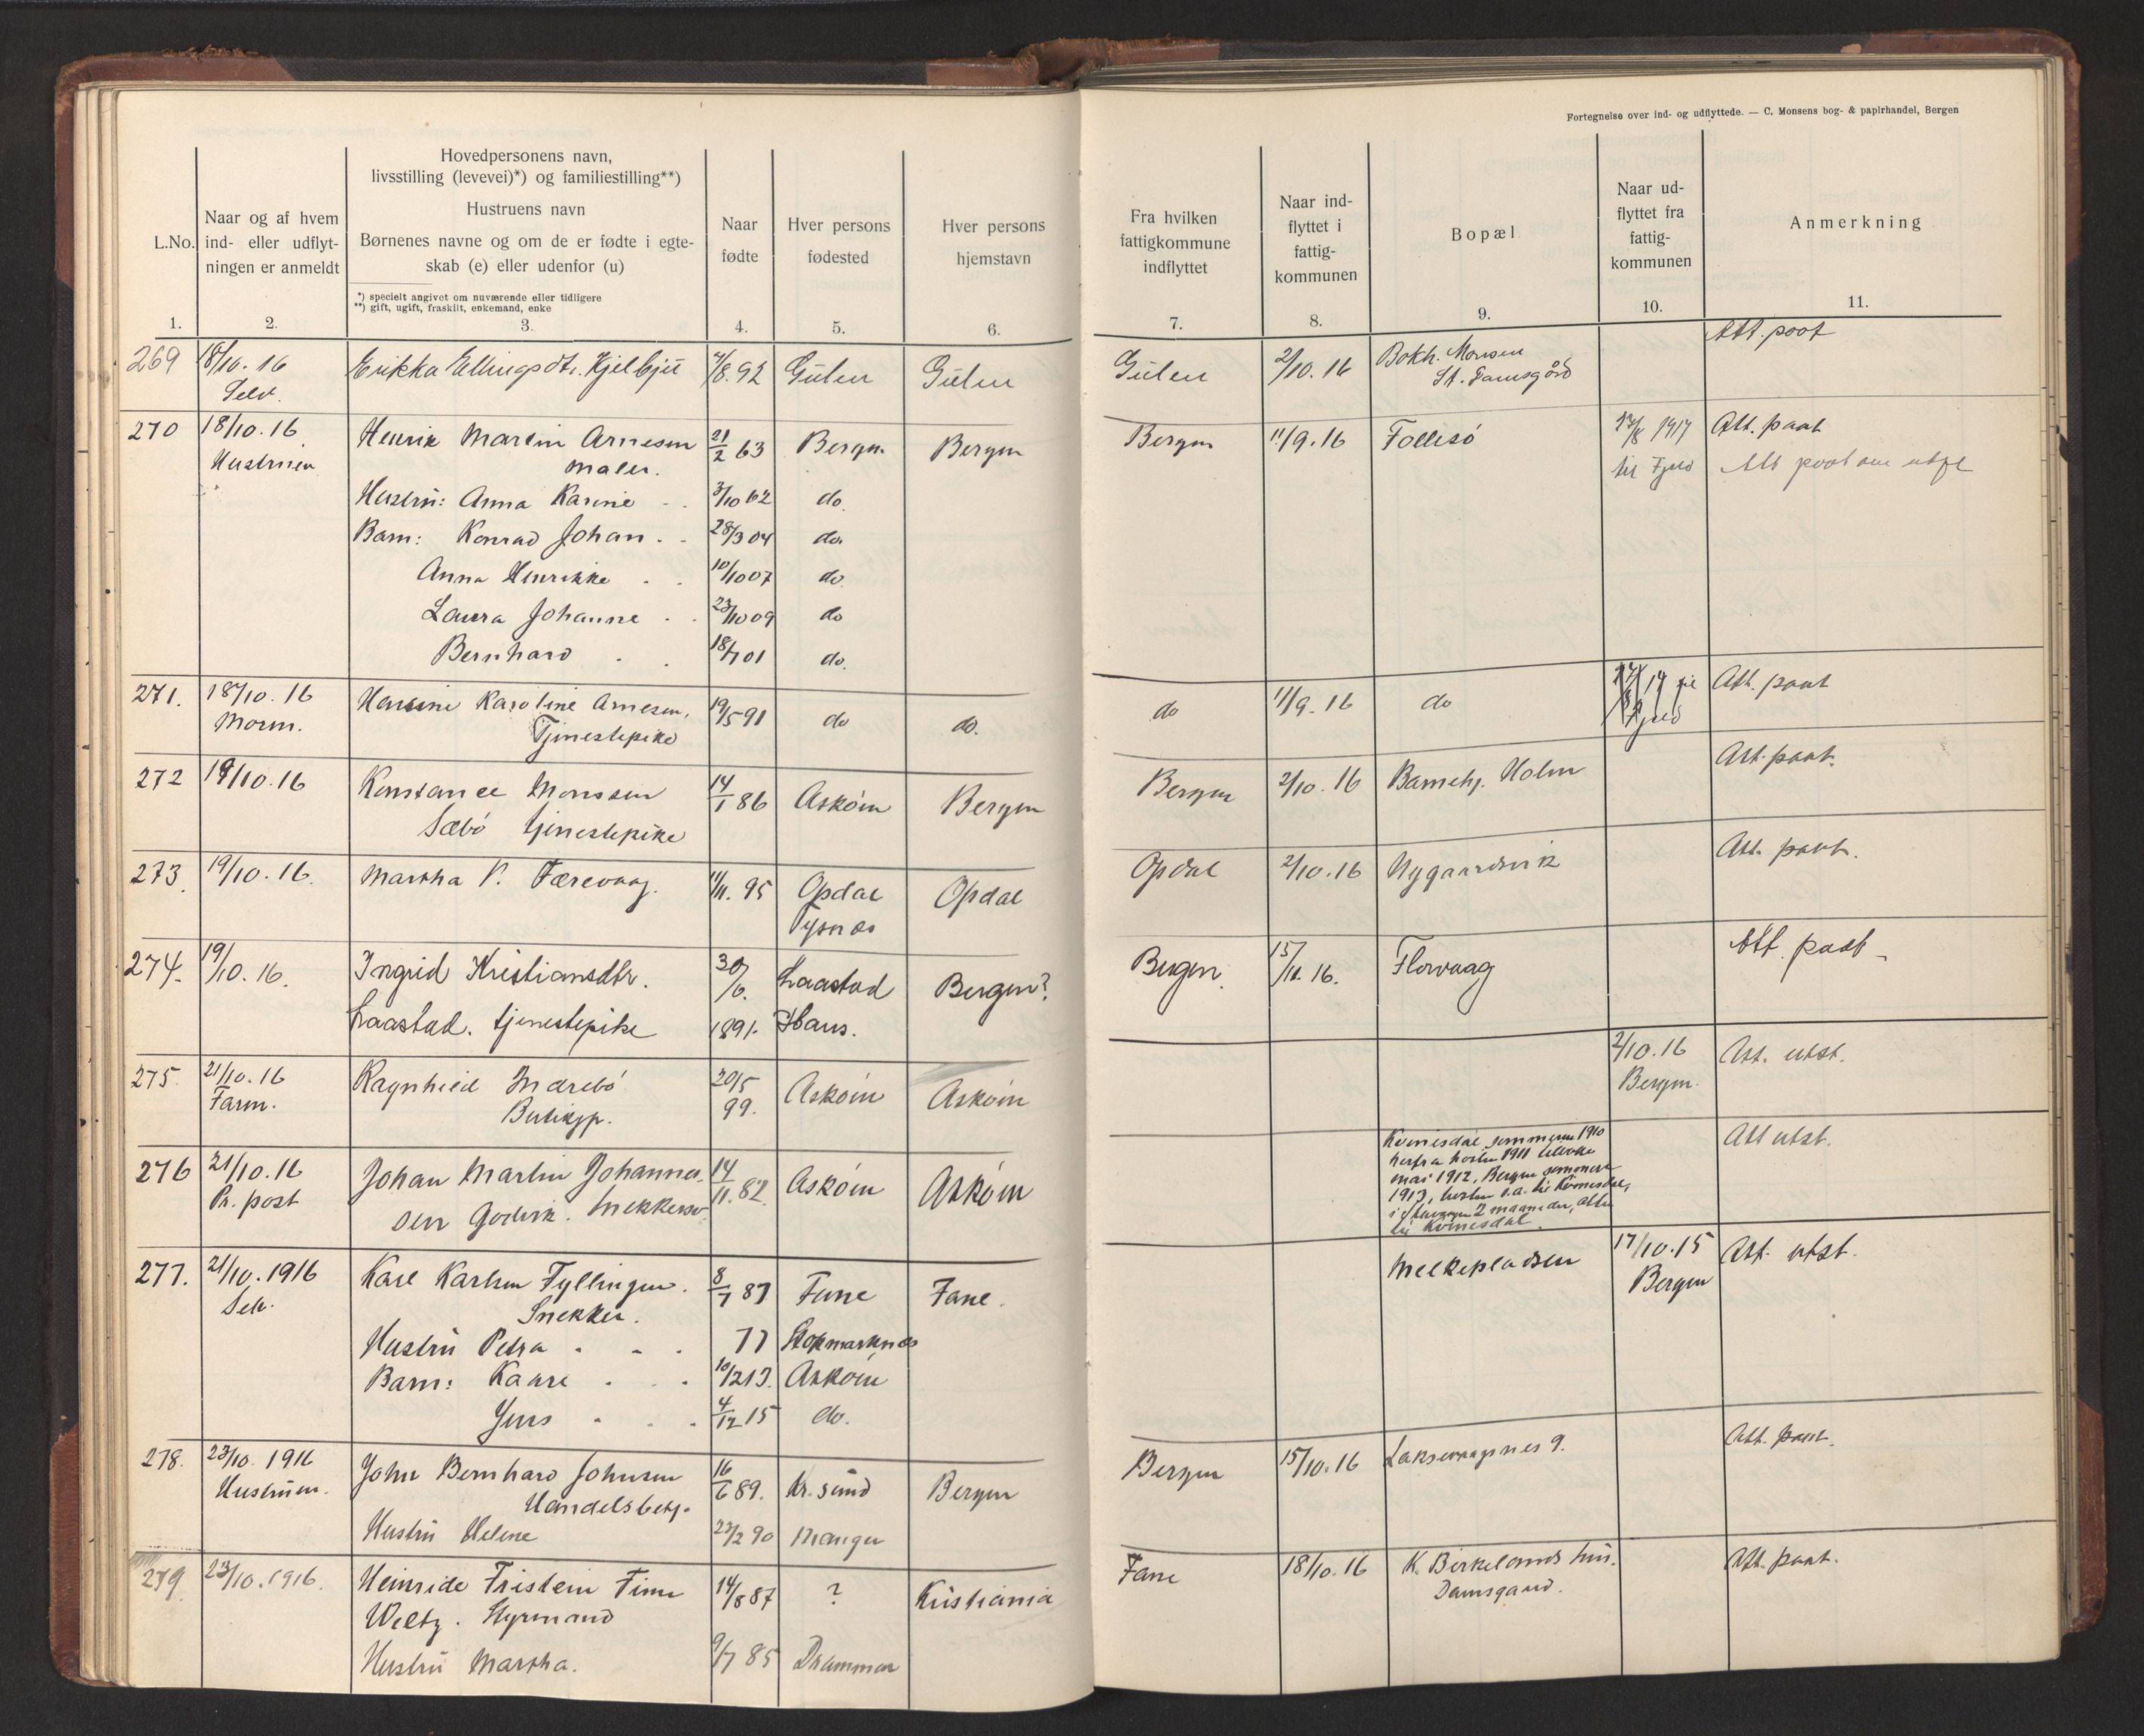 Fortegnelse over ind- og udflyttede. — C. Monsens bog- & papirhandel, Bergen
L.No.
1.
Naar og af hvem
ind- eller udflyt-
ningen er anmeldt
2.
Hovedpersonens navn,
livsstilling (levevei)*) og familiestilling**)
Hustruens navn
Børnenes navne og om de er fødte i egte-
skab (e) eller udenfor (u)
*) specielt angivet om nuværende eller tidligere
**) gift, ugift, fraskilt, enkemand, enke
3.
Naar
fødte
4.
Hver persons
fødested
5.
Hver persons
hjemstavn
6.
Fra hvilken
fattigkommune
indflyttet
7.
Naar ind-
flyttet i
fattig-
kommunen
8.
Bopæl
9.
Naar ud-
flyttet fra
fattig-
kommunen
10.
Anmerkning
11.
269 18/10. 16 Erikka Ellingsdtr. /8. 92 Gulen Gulen Gulen 2/10. 16 Bokh. Monsen Att. paat
Selv. Damsgård
270 18/10. 16 Henrik Martin Arnesen 21/2 63 Bergen Bergen Bergen 11/9. 16 Follesö /8 1917 Att. paat
Hustruen Maler. til Fjeld Att paat om utfl
Hustru: Anna Karine 3/10 62 do.
Barn: Konrad Johan 28/3 04 do.
Anna Henrikke 10/10 07 do.
Laura Johanne 23/10 09 do
Bernhard 18/7 01 do.
271. 18/10. 16 Karoline Arnesen, 19/5 91 do do. do 11/9. 16 do 17 til Att. paat
Morm. Tjenestepike Fjeld
272 19/10. 16 Konstance Monssen 14/1 86 Askøin Bergen Bergen 2/10. 16 Barnehj. Holm Att. paat.
Sæbö tjenestepike
273. 19/10. 16. Martha V. Færevaag. 11/11. 95 Opdal Opdal Opdal 2/10. 16 Nygaardsvik Att. paat.
Tysnæs
274. 19/10. 16. Ingrid Kristiansdtr. 30/6. Laastad Bergen? Bergen. 15/11. 16. Florvaag Att. paat -
Laastad. tjenestepike 1891. Haus.
275 21/10. 16 Ragnhild Mærebö 20/5 Askøin Askøin 2/10. 16 Att. utst.
Farm. Butikjp. 99. Bergen.
276 21/10. 16 Johan Martin Johannes- 14/11. 82 Askøin Askøin Kvinesdal sommeren 1910 Att utst.
Pr. post sen Godvik. Snekkersv. herfra høsten 1911
mai 1912, Bergen sommeren
1913, høsten s.a. til Kvinesdal,
2 maaneder, atter
til Kvinesdal.
277. 21/10. 1916 Karl Karlsen Fyllingen. 8/7 87 Fane Fane. Melkepladsen 17/10. 15 Att. utst.
Selv. Snekker. Bergen
Hustru Petra 77 Stokmarknes
Barn: Kaare 10/2 13. Askøin
Jens 4/12 15 do.
278. 23/10. 1916 John Bernhard Johnsen 16/6 89. Kr. sund Bergen Bergen 15/10. 16 Laksevaagsnes 9. Att. paat.
Hustruen. Handelsbetj.
Hustru Helene 23/2 90 Manger
279. 23/10. 1916. Heinride Fristein Finn 14/8 87 ? Kristiania Fane 18/10. 16 K. Birkelands hus. Att. paat.
Weltz. Styrmand Damsgaard.
Hustru Martha. 9/7 85 Drammen